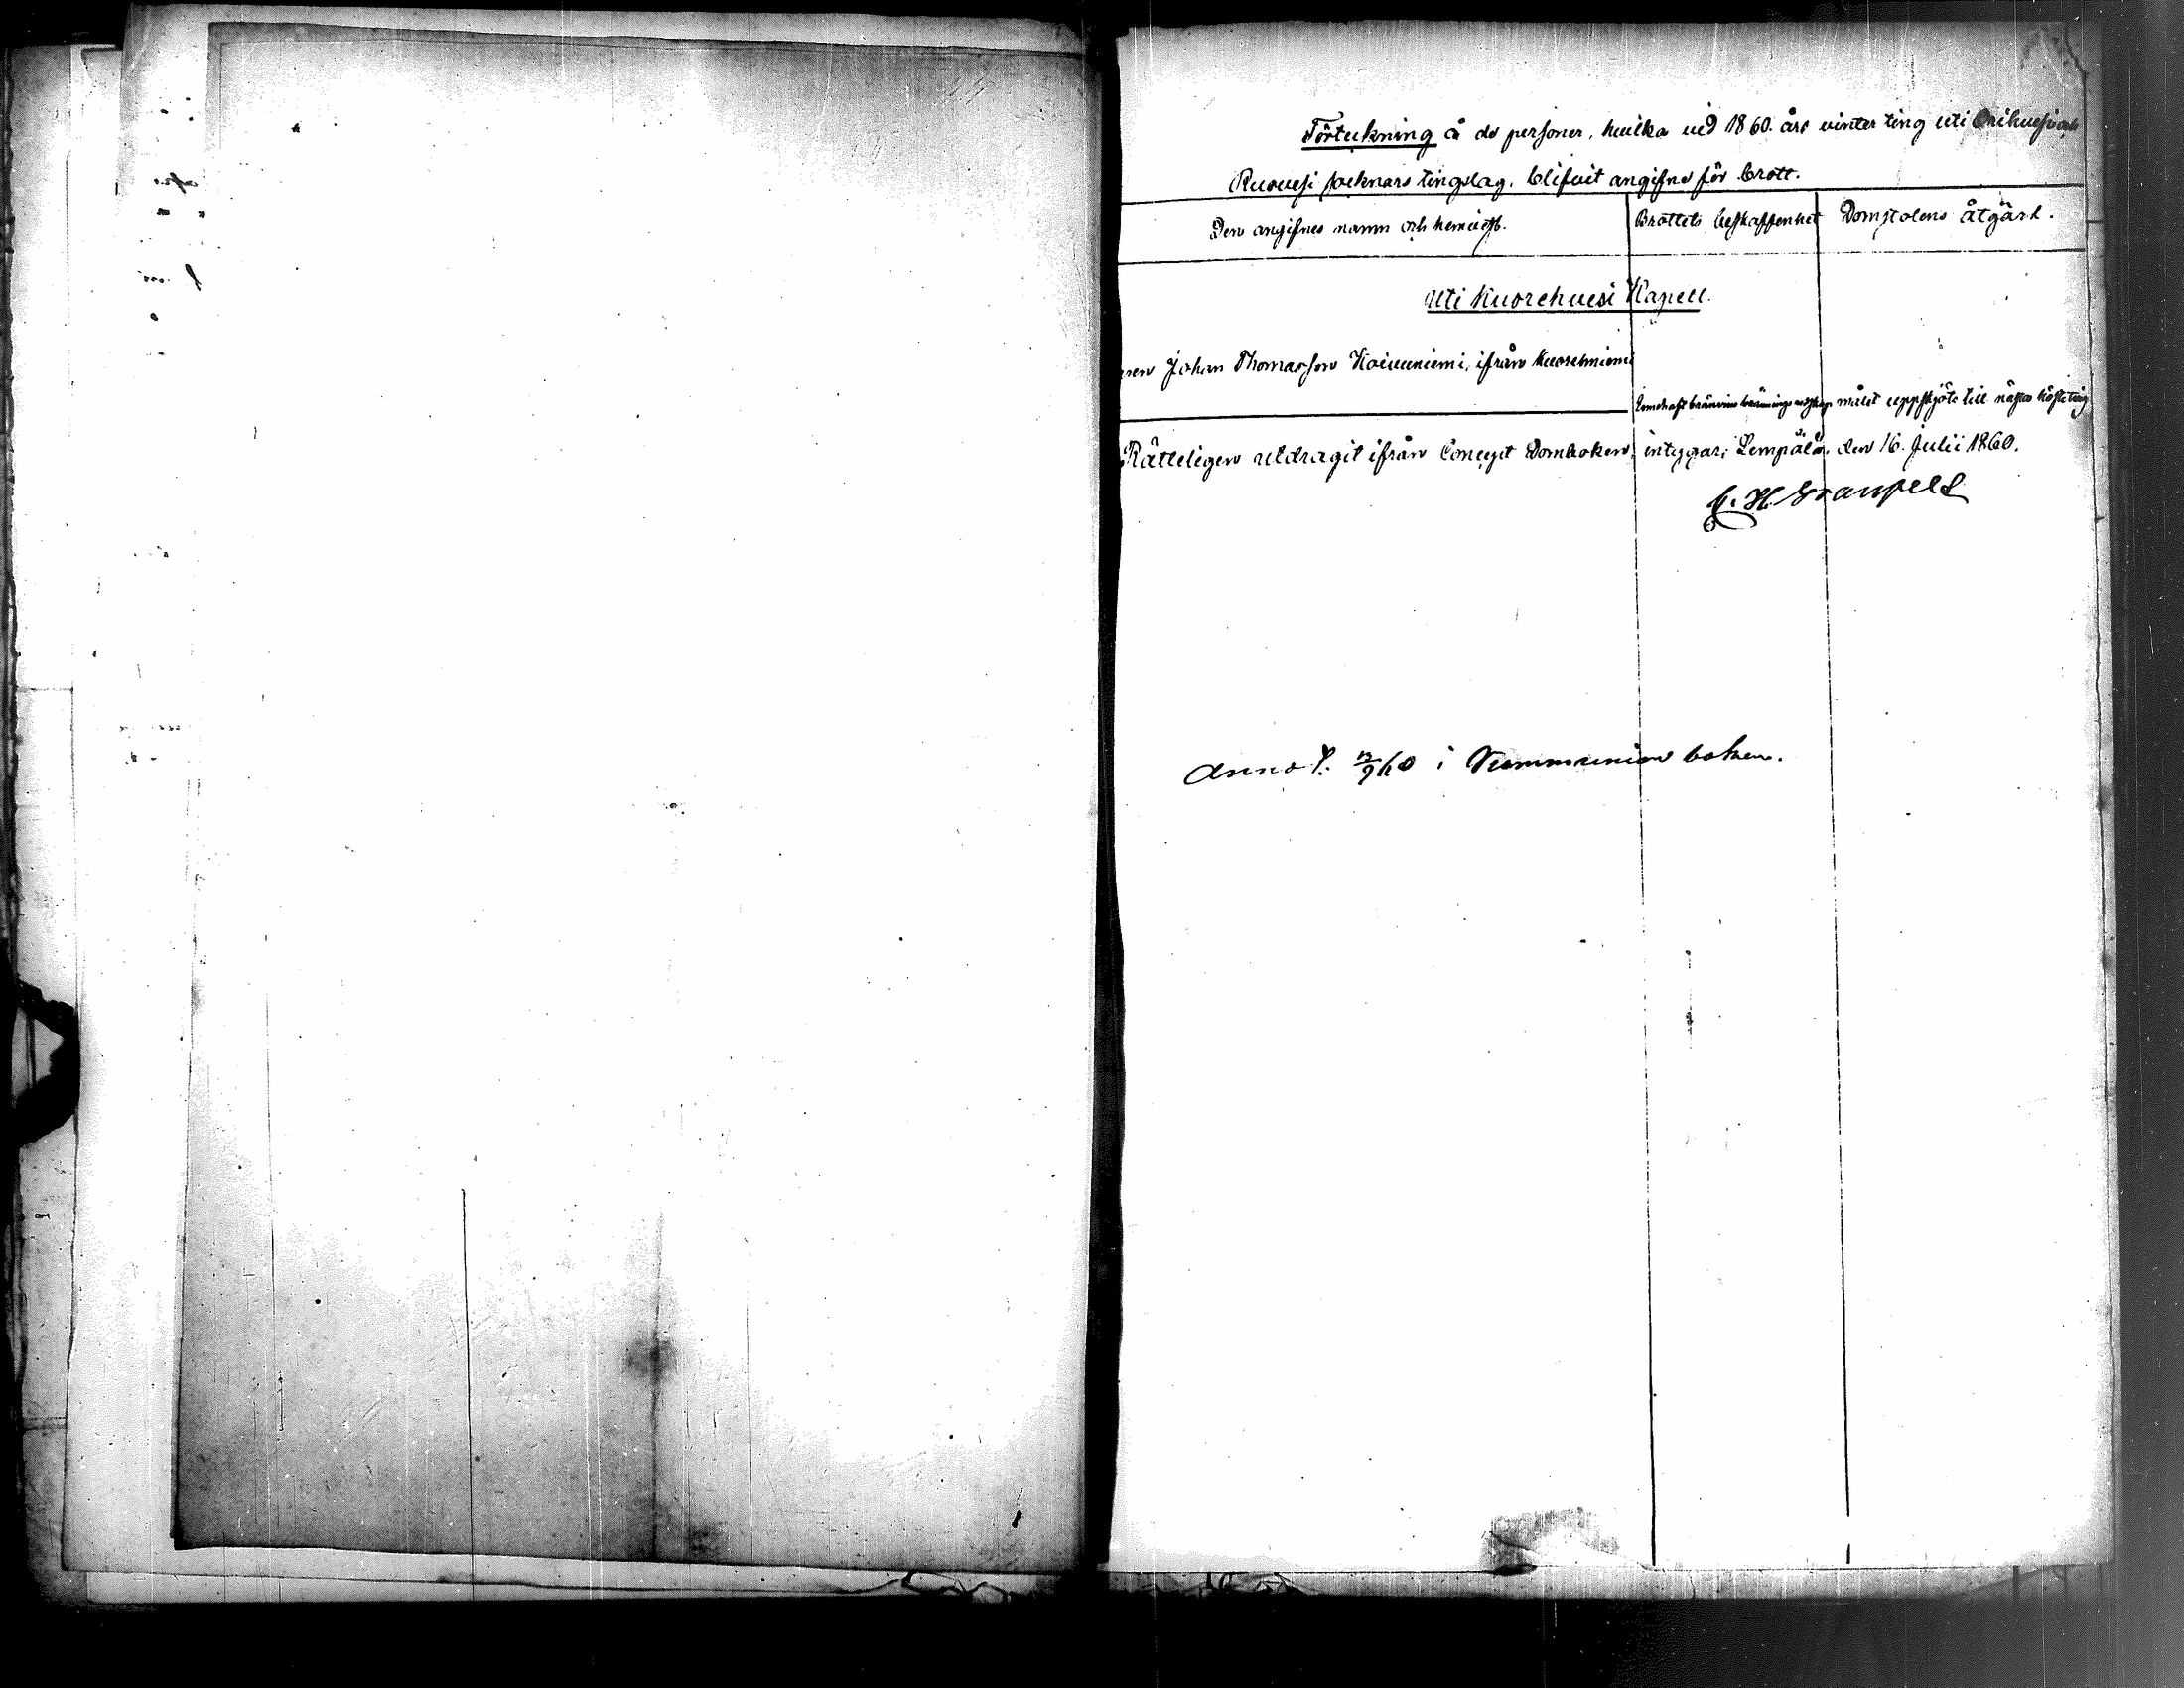 Förteckning å de personer, hvilka vid 1860. års vinter ting uti Orihvesi och
Ruovesi socknars tingslag, blifvit angifne för brott.
Den angifnes namn och hemvist. Brottets beskaffenhet Domstolens åtgärd.
Uti Kuorehvesi Kapell.
Johan Thomasson Koivuniemi, ifrån Kuoreniemi
målet uppskjöts till nästa höste ting
Rätteligen utdragit ifrån Concept Domboken, intygar; Lempälä, den 16. Julii 1860.
Annot. 12/9 60 i Kommunion boken.